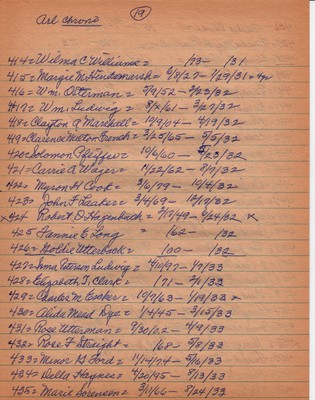 Arl Chrono 19
414 = Wilma C Williams = 193 - 131
415 = Margie M Hindsmarsh = 6/8/27 - 1/29/31 = 4yr
416 = Wm. Osterman = 2/9/52 - 2/23/32
417 = Wm. Ludwig = 8/x/61 - 3/27/32
418 = Clayton A Marshall = 10/9/04 - 4/19/32
419 = Clarence Milton French = 3/25/65 - 5/5/32
420 = Solomon Pfeiffer = 10/6/60 - 5/23/32
421 = Carrie A Wager = 11/22/62 - 8/17/32
422 = Myron H Cook = 3/6/79 - 10/4/32
423 = John F Laaker = 3/4/69 - 12/17/32
x424 Robert D Hagenbuch = 7/7/49 - 6/24/32 x
425 Fannie E Long = 162 - 132
426 = Goldie Utterback = 100 - 132
427 = Irma Peterson Ludwig = 4/10/97 - 1/7/33
428 = Elizabeth T. Clark = 171 - 33
429 = Charles M Esker = 10/7/63 - 1/19/33
430 = Alida Mead Dye = 1/4/45 - 3/15/33
431 = Rose Utterman = 7/30/02 - 4/9/33
432 = Rose F Straight = 168 - 5/8/33
433 = Minor G Ford = 11/14/74 - 5/16/33
434 = Della Haynes = 4/20/95 - 8/13/33
435 = Marie Sorenson = 3/11/66 - 8/24/33